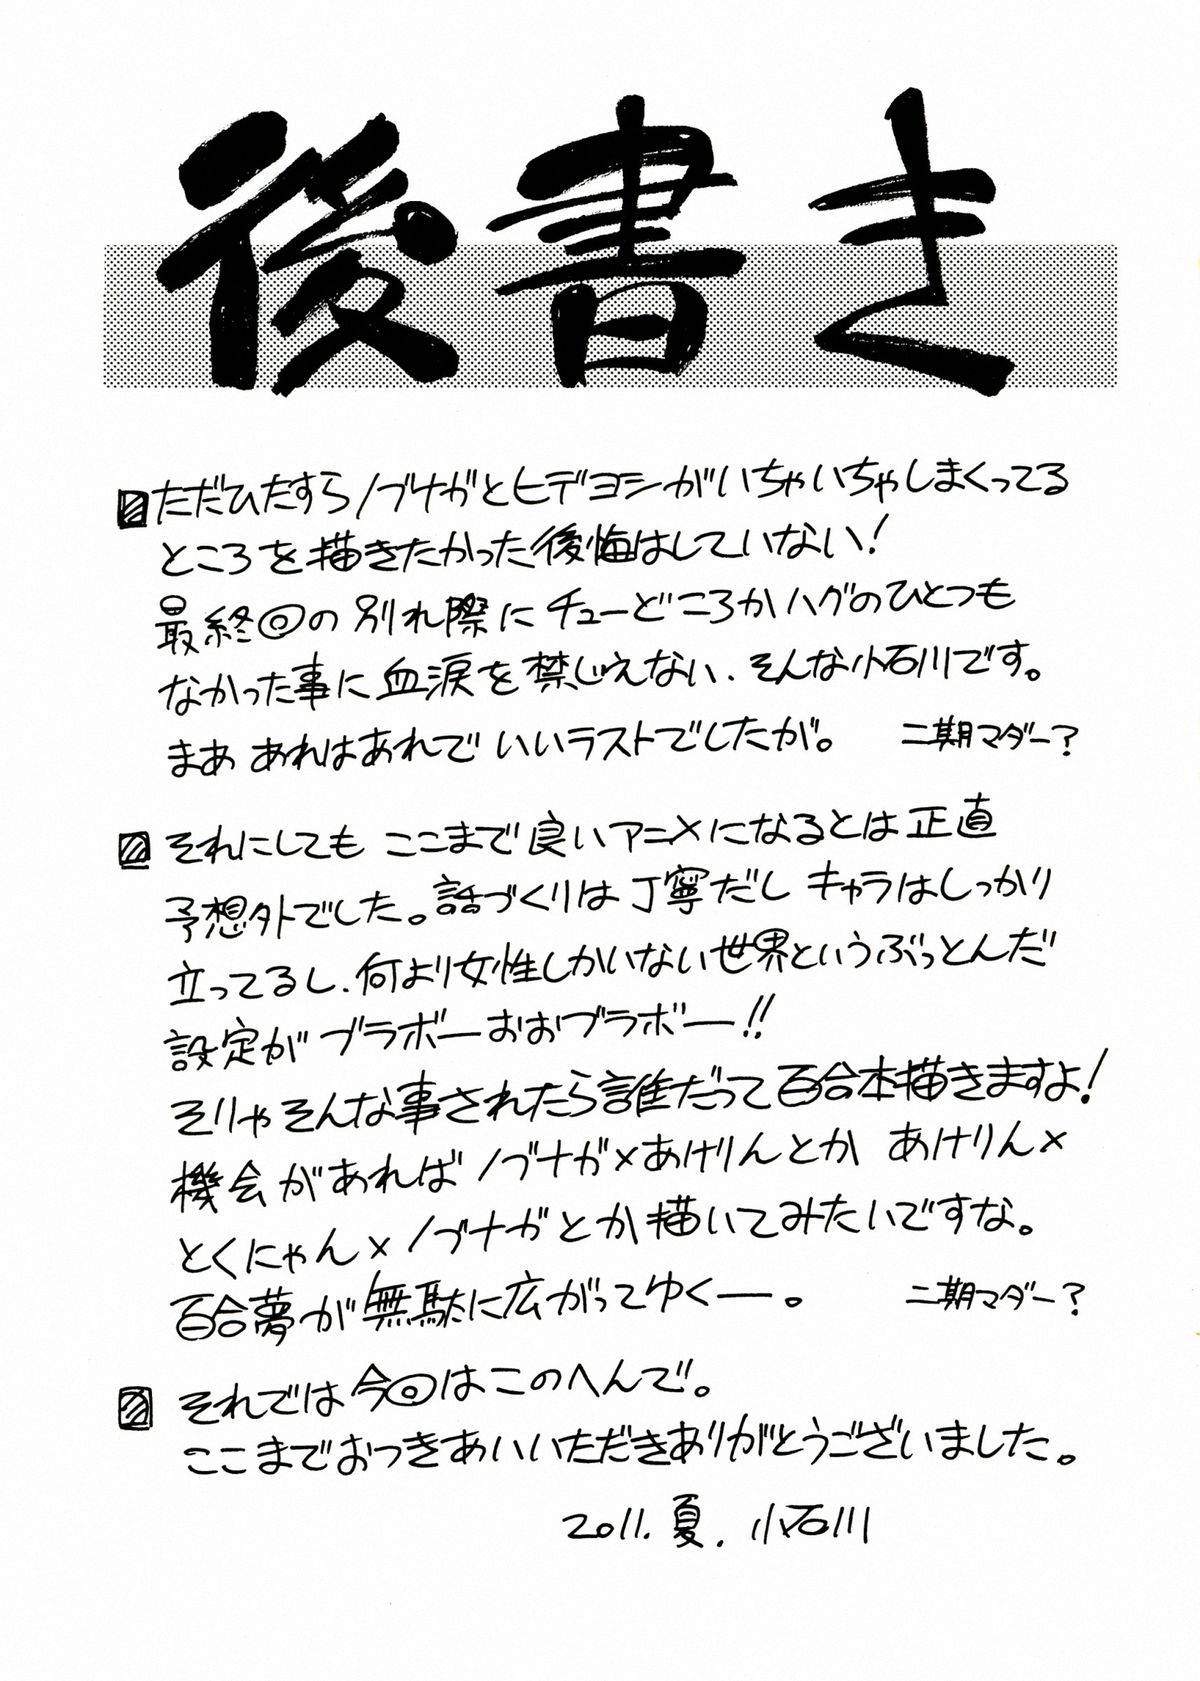 後書き
ただひたすらノブナガとヒデヨシがいちゃいちゃしまくってる
ところを描きたかった後悔はしていない!
最終回の別れ際にチューどころかハグのひとつも
なかった事に血涙を禁じえない、そんな小石川です。
まあ あれはあれで いいラストでしたが。 二期マダー?
それにしても ここまで良いアニメになるとは正直
予想外でした。話づくりは丁寧だし キャラはしっかり
立ってるし、何より女性しかいない世界というぶっとんだ
設定が ブラボーおおブラボー!!
そりゃそんな事されたら誰だって百合本描きますよ!
機会があれば ノブナガ×あけりんとか あけりん×
とくにゃん×ノブナガとか描いてみたいですな。
百合夢が無駄に広がってゆくー。 二期マダー?
それでは今回はこのへんで。
ここまでおつきあいいただきありがとうございました。
2011. 夏. 小石川